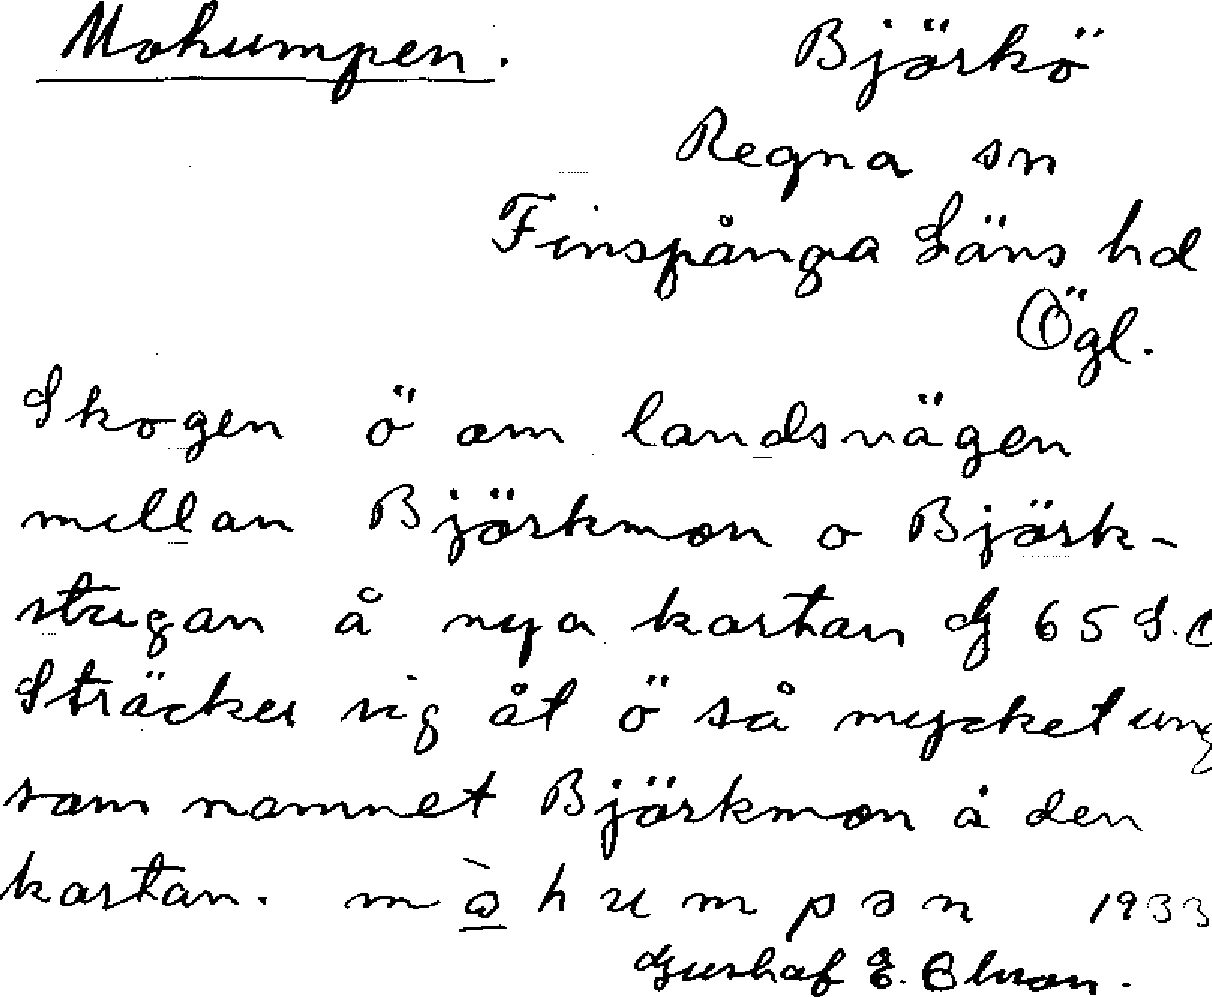 Mohumpen. Björkö
Regna sn
Finspånga Läns hd
Ögl.
Skogen ö om landsvägen
mellan Björkmon o Björk-
stugan å nya kartan G 65 S.O
Sträcker sig åt ö så mycket ung
som namnet Björkmon å den
kartan. m h u m p ə n 1933
Gustaf E.